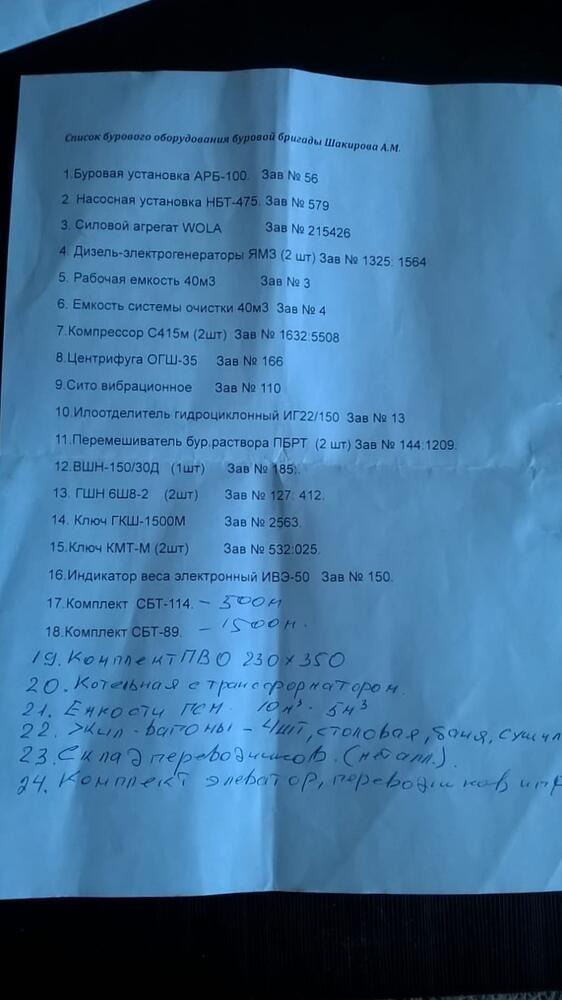 Список бурового оборудования буровой бригады Шакирова А.М.
1.Буровая установка АРБ-100. Зав № 56
2. Насосная установка НБТ-475. Зав № 579
3. Силовой агрегат WOLA Зав № 215426
4. Дизель-электрогенераторы ЯМЗ (2 шт) Зав № 1325: 1564
5. Рабочая емкость 40м3 Зав № 3
6. Емкость системы очистки 40м3 Зав № 4
7.Компрессор С415м (2шт) Зав № 1632:5508
8.Центрифуга ОГШ-35 Зав № 166
9.Сито вибрационное Зав № 110
10.Илоотделитель гидроциклонный ИГ22/150 Зав № 13
11.Перемешиватель бур.раствора ПБРТ (2 шт) Зав № 144:1209.
12.ВШН-150/30Д (1шт) Зав № 185:.
13. ГШН 6Ш8-2 (2шт) Зав № 127: 412.
14. Ключ ГКШ-1500М Зав № 2563.
15.Ключ КМТ-М (2шт) Зав № 532:025.
16.Индикатор веса электронный ИВЭ-50 Зав № 150.
17.Комплект СБТ-114. – 500м
18.Комплект СБТ-89. – 1500м.
19. Комплект ПВО 230х350
20. Котельная с трансформатором.
21. Емкости ГСМ. 10м³. 5м³
22. Жил-вагоны – 4шт, столовая, баня, сушил
23. Склад переводников. (металл.).
24. Комплект элеватор, переводников и пр